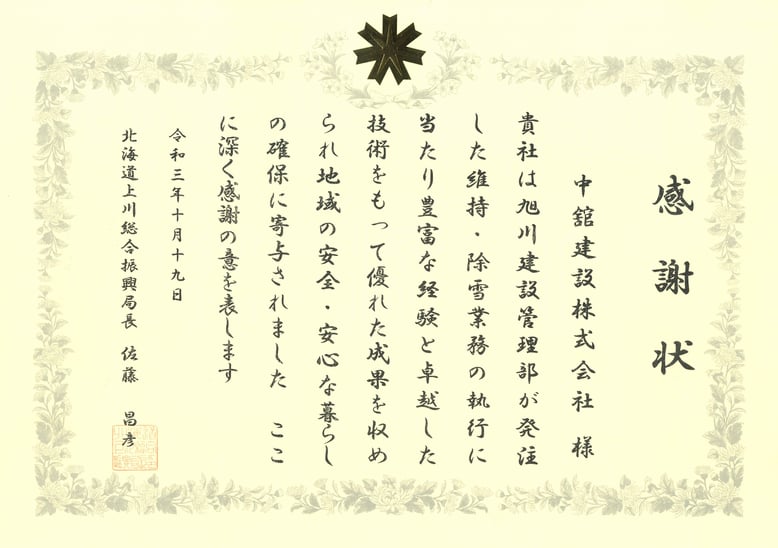 感謝状
中舘建設株式会社 様
貴社は旭川建設管理部が発注
した維持・除雪業務の執行に
当たり豊富な経験と卓越した
技術をもって優れた成果を収め
られ地域の安全・安心な暮らし
の確保に寄与されました ここ
に深く感謝の意を表します
令和三年十月十九日
北海道上川総合振興局長 佐藤 昌彦